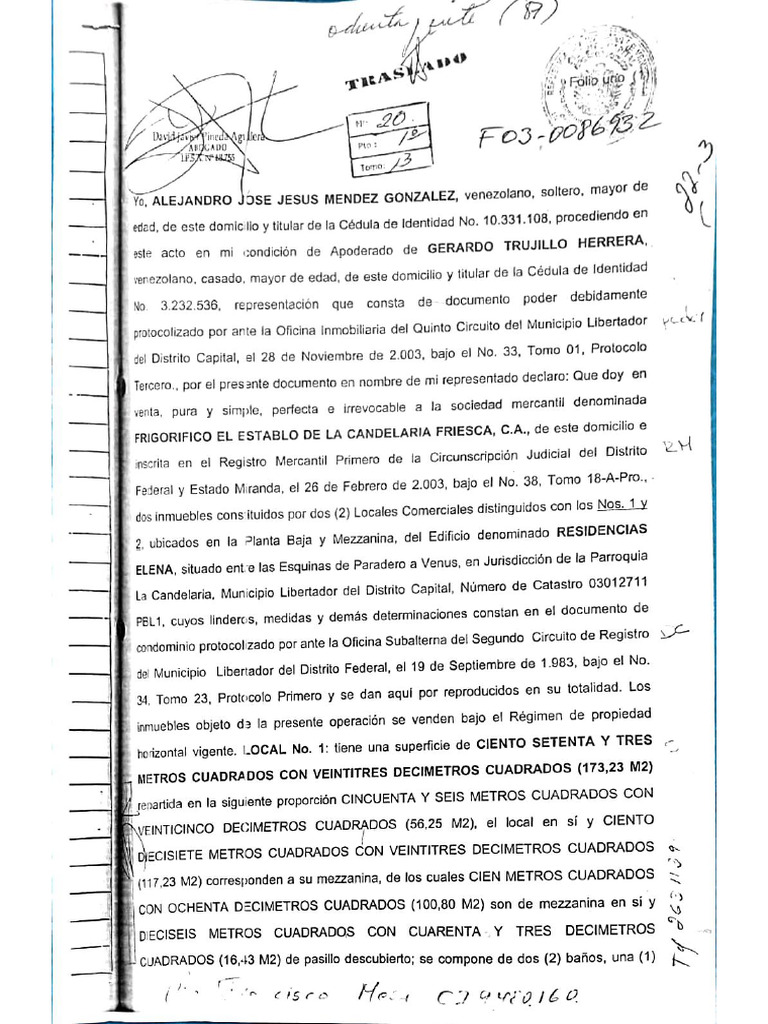 ochenta y siete (87)
TRASLADO
Folio uno (1)
David Javier Pineda Aguilera
ABOGADO
I.P.S.A. Nº 68.755
Nº: 20
Pto: 1º
Tomo: 13
F03-0086932
Yo, ALEJANDRO JOSE JESUS MENDEZ GONZALEZ, venezolano, soltero, mayor de
edad, de este domicilio y titular de la Cédula de Identidad No. 10.331.108, procediendo en
este acto en mi condición de Apoderado de GERARDO TRUJILLO HERRERA,
venezolano, casado, mayor de edad, de este domicilio y titular de la Cédula de Identidad
No. 3.232.536, representación que consta de documento poder debidamente
protocolizado por ante la Oficina Inmobiliaria del Quinto Circuito del Municipio Libertador
del Distrito Capital, el 28 de Noviembre de 2.003, bajo el No. 33, Tomo 01, Protocolo
Tercero., por el presente documento en nombre de mi representado declaro: Que doy en
venta, pura y simple, perfecta e irrevocable a la sociedad mercantil denominada
FRIGORIFICO EL ESTABLO DE LA CANDELARIA FRIESCA, C.A., de este domicilio e
inscrita en el Registro Mercantil Primero de la Circunscripción Judicial del Distrito
Federal y Estado Miranda, el 26 de Febrero de 2.003, bajo el No. 38, Tomo 18-A-Pro.,
dos inmuebles constituidos por dos (2) Locales Comerciales distinguidos con los Nos. 1 y
2, ubicados en la Planta Baja y Mezzanina, del Edificio denominado RESIDENCIAS
ELENA, situado entre las Esquinas de Paradero a Venus, en Jurisdicción de la Parroquia
La Candelaria, Municipio Libertador del Distrito Capital, Número de Catastro 03012711
PBL1, cuyos linderos, medidas y demás determinaciones constan en el documento de
condominio protocolizado por ante la Oficina Subalterna del Segundo Circuito de Registro
del Municipio Libertador del Distrito Federal, el 19 de Septiembre de 1.983, bajo el No.
34, Tomo 23, Protocolo Primero y se dan aquí por reproducidos en su totalidad. Los
inmuebles objeto de la presente operación se venden bajo el Régimen de propiedad
horizontal vigente. LOCAL No. 1: tiene una superficie de CIENTO SETENTA Y TRES
METROS CUADRADOS CON VEINTITRES DECIMETROS CUADRADOS (173,23 M2)
repartida en la siguiente proporción CINCUENTA Y SEIS METROS CUADRADOS CON
VEINTICINCO DECIMETROS CUADRADOS (56,25 M2), el local en sí y CIENTO
DIECISIETE METROS CUADRADOS CON VEINTITRES DECIMETROS CUADRADOS
(117,23 M2) corresponden a su mezzanina, de los cuales CIEN METROS CUADRADOS
CON OCHENTA DECIMETROS CUADRADOS (100,80 M2) son de mezzanina en sí y
DIECISEIS METROS CUADRADOS CON CUARENTA Y TRES DECIMETROS
CUADRADOS (16,43 M2) de pasillo descubierto; se compone de dos (2) baños, una (1)
22-3
RM
Francisco